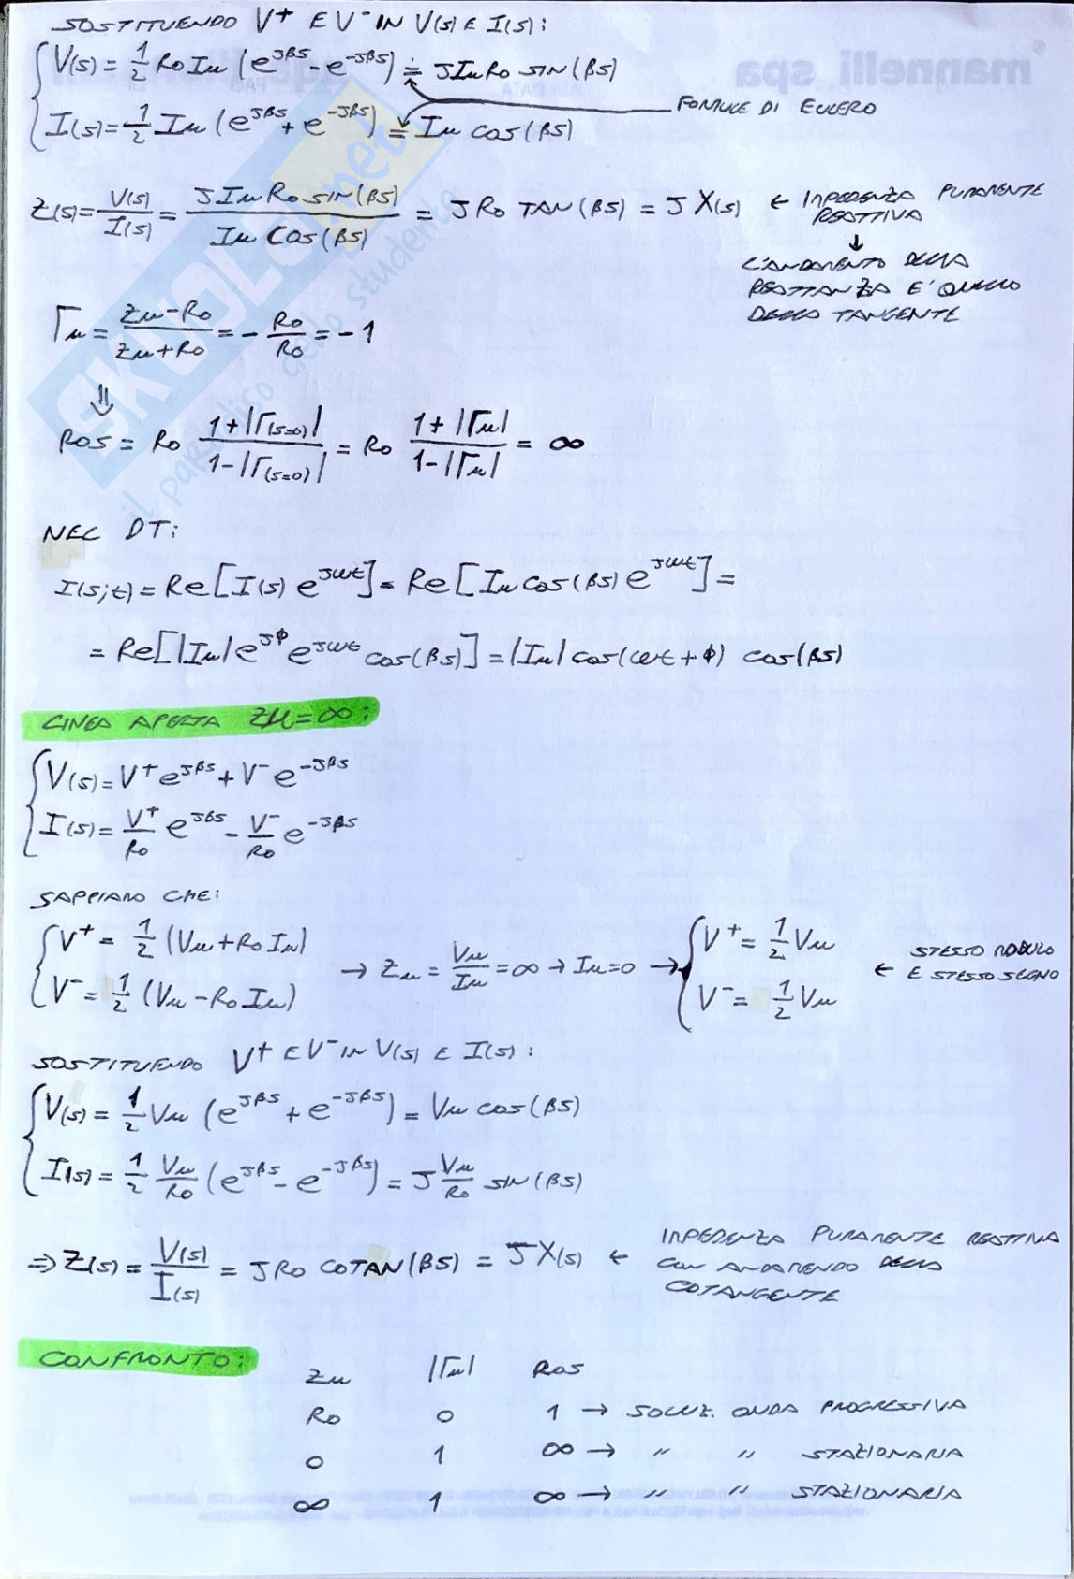 SOSTITUENDO V⁺ E V⁻ IN V(s) E I(s):
V(s) = 1/2 Ro Iu (e^{Jβs} - e^{-Jβs}) = J Iu Ro SIN(βs)
FORMULE DI EULERO
I(s) = 1/2 Iu (e^{Jβs} + e^{-Jβs}) = Iu COS(βs)
Z(s) = V(s)/I(s) = J Iu Ro SIN(βs) / Iu COS(βs) = J Ro TAN(βs) = J X(s) ← IMPEDENZA PURAMENTE REATTIVA
↓
L'ANDAMENTO DELLA
REATTANZA E' QUELLO
DELLA TANGENTE
Γu = (Zu - Ro)/(Zu + Ro) = - Ro/Ro = -1
⇓
ROS = Ro (1+|Γ(s=0)|)/(1-|Γ(s=0)|) = Ro (1+|Γu|)/(1-|Γu|) = ∞
NEL DT:
I(s;t) = Re[I(s) e^{Jωt}] = Re[Iu cos(βs) e^{Jωt}] =
= Re[|Iu| e^{Jφ} e^{Jωt} cos(βs)] = |Iu| cos(ωt + φ) cos(βs)
LINEA APERTA Zu = ∞:
V(s) = V⁺ e^{Jβs} + V⁻ e^{-Jβs}
I(s) = V⁺/Ro e^{Jβs} - V⁻/Ro e^{-Jβs}
SAPPIAMO CHE:
V⁺ = 1/2 (Vu + Ro Iu)
V⁻ = 1/2 (Vu - Ro Iu)
→ Zu = Vu/Iu = ∞ → Iu = 0 →
V⁺ = 1/2 Vu
V⁻ = 1/2 Vu
← STESSO MODULO
E STESSO SEGNO
SOSTITUENDO V⁺ E V⁻ IN V(s) E I(s):
V(s) = 1/2 Vu (e^{Jβs} + e^{-Jβs}) = Vu cos(βs)
I(s) = 1/2 Vu/Ro (e^{Jβs} - e^{-Jβs}) = J Vu/Ro SIN(βs)
⇒ Z(s) = V(s)/I(s) = J Ro COTAN(βs) = J X(s) ← IMPEDENZA PURAMENTE REATTIVA
CON ANDAMENDO DELLA
COTANGENTE
CONFRONTO:
Zu |Γu| ROS
Ro 0 1 → SOLUZ. ONDA PROGRESSIVA
0 1 ∞ → " " STAZIONARIA
∞ 1 ∞ → " " STAZIONARIA
SKUOLA.net
il paradiso dello studente
mannelli spa